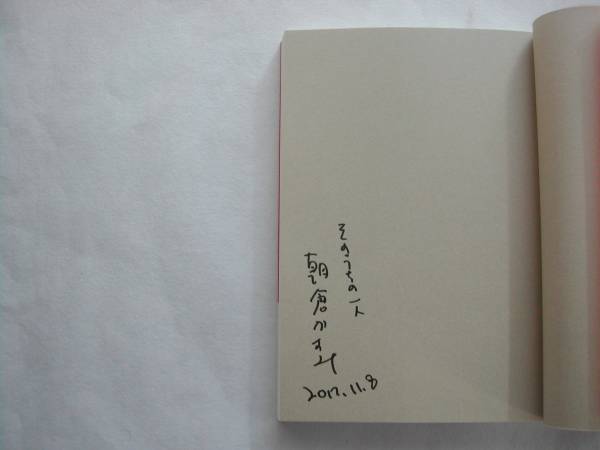 そのうちの一人
朝倉かすみ
2017.11.8